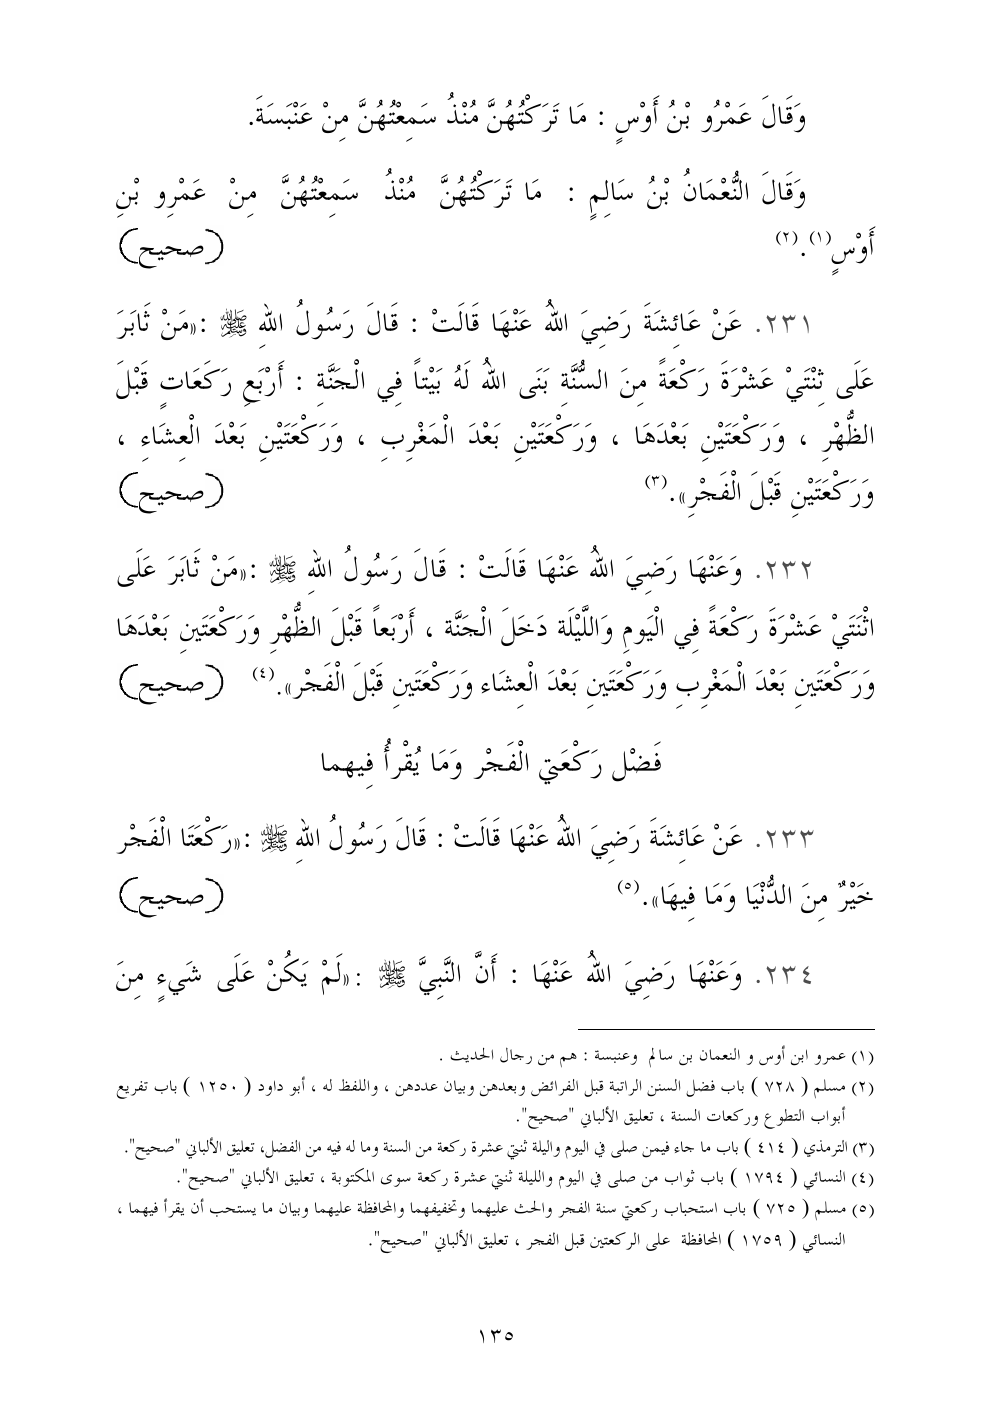 وَقَالَ عَمْرُو بْنُ أَوْسٍ : مَا تَرَكْتُهُنَّ مُنْذُ سَمِعْتُهُنَّ مِنْ عَنْبَسَةَ.
وَقَالَ النُّعْمَانُ بْنُ سَالِمٍ : مَا تَرَكْتُهُنَّ مُنْذُ سَمِعْتُهُنَّ مِنْ عَمْرِو بْنِ
أَوْسٍ(١).(٢) (صحيح)
٢٣١. عَنْ عَائِشَةَ رَضِيَ اللهُ عَنْهَا قَالَتْ : قَالَ رَسُولُ اللهِ ﷺ :«مَنْ ثَابَرَ
عَلَى ثِنْتَيْ عَشْرَةَ رَكْعَةً مِنَ السُّنَّةِ بَنَى اللهُ لَهُ بَيْتاً فِي الْجَنَّةِ : أَرْبَعِ رَكَعَاتٍ قَبْلَ
الظُّهْرِ ، وَرَكْعَتَيْنِ بَعْدَهَا ، وَرَكْعَتَيْنِ بَعْدَ الْمَغْرِبِ ، وَرَكْعَتَيْنِ بَعْدَ الْعِشَاءِ ،
وَرَكْعَتَيْنِ قَبْلَ الْفَجْرِ».(٣) (صحيح)
٢٣٢. وَعَنْهَا رَضِيَ اللهُ عَنْهَا قَالَتْ : قَالَ رَسُولُ اللهِ ﷺ :«مَنْ ثَابَرَ عَلَى
اثْنَتَيْ عَشْرَةَ رَكْعَةً فِي الْيَومِ وَاللَّيْلَة دَخَلَ الْجَنَّة ، أَرْبَعاً قَبْلَ الظُّهْرِ وَرَكَعَتَينِ بَعْدَهَا
وَرَكَعَتَينِ بَعْدَ الْمَغْرِبِ وَرَكْعَتَينِ بَعْدَ الْعِشَاء وَرَكْعَتَينِ قَبْلَ الْفَجْرِ».(٤) (صحيح)
فَضْل رَكْعَتي الْفَجْر وَمَا يُقْرأُ فِيهما
٢٣٣. عَنْ عَائِشَةَ رَضِيَ اللهُ عَنْهَا قَالَتْ : قَالَ رَسُولُ اللهِ ﷺ :«رَكْعَتَا الْفَجْر
خَيْرٌ مِنَ الدُّنْيَا وَمَا فِيهَا».(٥) (صحيح)
٢٣٤. وَعَنْهَا رَضِيَ اللهُ عَنْهَا : أَنَّ النَّبِيَّ ﷺ :«لَمْ يَكُنْ عَلَى شَيءٍ مِنَ
(١) عمرو ابن أوس و النعمان بن سالم وعنبسة : هم من رجال الحديث .
(٢) مسلم ( ٧٢٨ ) باب فضل السنن الراتبة قبل الفرائض وبعدهن وبيان عددهن ، واللفظ له ، أبو داود ( ١٢٥٠ ) باب تفريع
أبواب التطوع وركعات السنة ، تعليق الألباني "صحيح".
(٣) الترمذي ( ٤١٤ ) باب ما جاء فيمن صلى في اليوم واليلة ثنتي عشرة ركعة من السنة وما له فيه من الفضل، تعليق الألباني "صحيح".
(٤) النسائي ( ١٧٩٤ ) باب ثواب من صلى في اليوم والليلة ثنتي عشرة ركعة سوى المكتوبة ، تعليق الألباني "صحيح".
(٥) مسلم ( ٧٢٥ ) باب استحباب ركعتي سنة الفجر والحث عليهما وتخفيفهما والمحافظة عليهما وبيان ما يستحب أن يقرأ فيهما ،
النسائي ( ١٧٥٩ ) المحافظة على الركعتين قبل الفجر ، تعليق الألباني "صحيح".
١٣٥